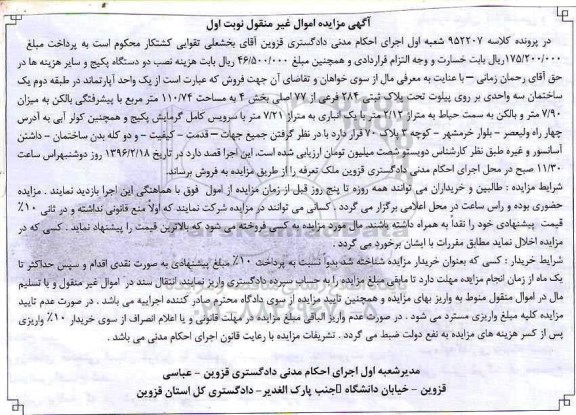 آگهی مزایده اموال غیر منقول نوبت اول
در پرونده کلاسه ۹۵۲۲۰۷ شعبه اول اجرای احکام مدنی دادگستری قزوین آقای بخشعلی تقوایی کشتکار محکوم است به پرداخت مبلغ
۱۷۵/۲۰۰/۰۰۰ریال بابت خسارت و وجه التزام قراردادی و همچنین مبلغ ۴۶/۵۰۰/۰۰۰ ریال بابت هزینه نصب دو دستگاه پکیج و سایر هزینه ها در
حق آقای رحمان زمانی – با عنایت به معرفی مال از سوی خواهان و تقاضای آن جهت فروش که عبارت است از یک واحد آپارتماند در طبقه دوم یک
ساختمان سه واحدی بر روی پیلوت تحت پلاک ثبتی ۲۸۴ فرعی از ۷۷ اصلی بخش ۴ به مساحت ۱۱۰/۷۴ متر مربع با پیشرفتگی بالکن به میزان
۷/۹۰ متر و بالکن به سمت حیاط به متراژ ۲/۱۲ متر با یک انباری به متراژ ۷/۲۱ متر با سرویس کامل گرمایش پکیج و همچنین کولر آبی به آدرس
چهار راه ولیعصر – بلوار خرمشهر – کوچه ۳ پلاک ۷۰ قرار دارد با در نظر گرفتن جمیع جهات – قدمت – کیفیت – و دو کله بدن ساختمان – داشتن
آسانسور و غیره طبق نظر کارشناس دویست و شصت میلیون تومان ارزیابی شده است. این اجرا قصد دارد در تاریخ ۱۳۹۶/۲/۱۸ روز دوشنبهراس ساعت
۱۱/۳۰ صبح در محل اجرای احکام مدنی دادگستری قزوین ملک تعرفه را از طریق مزایده به فروش برساند.
شرایط مزایده : طالبین و خریداران می توانند همه روزه تا پنج روز قبل از زمان مزایده از اموال فوق با هماهنگی این اجرا بازدید نمایند . مزایده
حضوری بوده و راس ساعت در محل اعلامی برگزار می گردد . کسانی می توانند در مزایده شرکت نمایند که اولاً منع قانونی نداشته و در ثانی ۱۰٪
قیمت پیشنهادی خود را نقداً به همراه داشته باشند. مال مورد مزایده به کسی فروخته می شود که بالاترین قیمت را پیشنهاد نماید . کسی که در
مزایده اخلال نماید مطابق مقررات با ایشان برخورد می گردد .
شرایط خریدار : کسی که بعنوان خریدار مزایده شناخته شد بدواً نسبت به پرداخت ۱۰٪ مبلغ پیشنهادی به صورت نقدی اقدام و سپس حداکثر تا
یک ماه از زمان انجام مزایده مهلت دارد تا مابقی مبلغ مزایده را به حساب سپرده دادگستری واریز نمایند. انتقال سند در اموال غیر منقول و یا تسلیم
مال در اموال منقول منوط به واریز بهای مزایده و همچنین تایید مزایده از سوی دادگاه محترم صادر کننده اجراییه می باشد . در صورت عدم تایید
مزایده کلیه مبلغ واریزی مسترد می شود . در صورت عدم واریز الباقی مبلغ مزایده در مهلت قانونی و یا اعلام انصراف از سوی خریدار ۱۰٪ واریزی
پس از کسر هزینه های مزایده به نفع دولت ضبط می گردد . تشریفات مزایده با رعایت قانون اجرای احکام مدنی می باشد .
مدیرشعبه اول اجرای احکام مدنی دادگستری قزوین – عباسی
قزوین – خیابان دانشگاه جنب پارک الغدیر– دادگستری کل استان قزوین